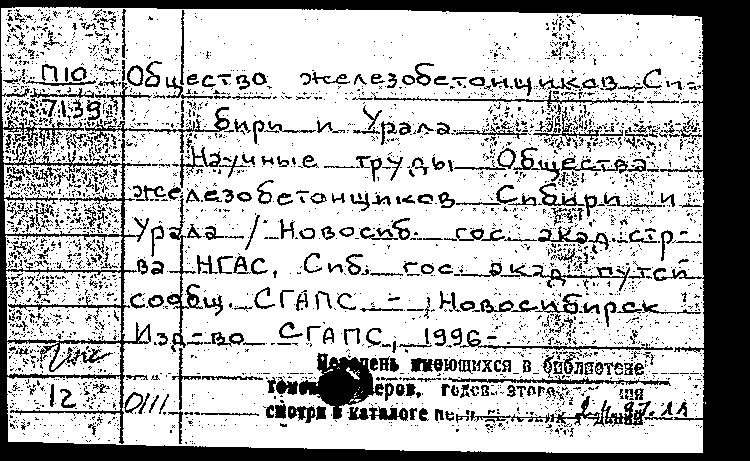 П10 Общество железобетонщиков Си-
7139 бири и Урала
Научные труды Общества
железобетонщиков Сибири и
Урала / Новосиб. гос. акад. стр-
ва НГАС, Сиб. гос. акад. путей
сообщ. СГАПС. - Новосибирск
Изд-во СГАПС, 1996-
Перечень имеющихся в библиотеке
годов. этого
12 смотри в каталоге